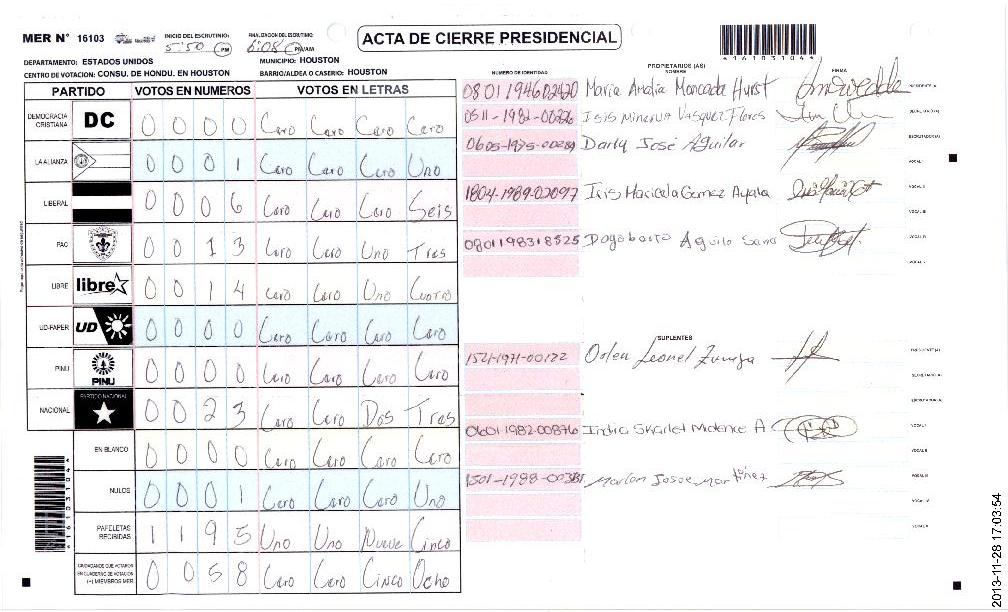 MER N° 16103
INICIO DEL ESCRUTINIO: 5:50 PM
FINALIZACION DEL ESCRUTINIO: 6:08 PM/AM
ACTA DE CIERRE PRESIDENCIAL
*16103104*
DEPARTAMENTO: ESTADOS UNIDOS
MUNICIPIO: HOUSTON
CENTRO DE VOTACION: CONSU. DE HONDU. EN HOUSTON
BARRIO/ALDEA O CASERIO: HOUSTON
PARTIDO VOTOS EN NUMEROS VOTOS EN LETRAS
DEMOCRACIA CRISTIANA DC 0 0 0 0 Cero Cero Cero Cero
LA ALIANZA 0 0 0 1 Cero Cero Cero Uno
LIBERAL 0 0 0 6 Cero Cero Cero Seis
PAC 0 0 1 3 Cero Cero Uno Tres
LIBRE libre 0 0 1 4 Cero Cero Uno Cuatro
UD-FAPER UD 0 0 0 0 Cero Cero Cero Cero
PINU PINU 0 0 0 0 Cero Cero Cero Cero
NACIONAL PARTIDO NACIONAL 0 0 2 3 Cero Cero Dos Tres
EN BLANCO 0 0 0 0 Cero Cero Cero Cero
NULOS 0 0 0 1 Cero Cero Cero Uno
PAPELETAS RECIBIDAS 1 1 9 5 Uno Uno Nueve Cinco
CIUDADANOS QUE VOTARON EN CUADERNO DE VOTACION (+) MIEMBROS MER 0 0 5 8 Cero Cero Cinco Ocho
*16103104*
PROPIETARIOS (AS)
NUMERO DE IDENTIDAD NOMBRE FIRMA
0801194602420 Maria Amalia Moncada Hurst PRESIDENTE (A)
0511-1982-00226 Isis Minerva Vasquez Flores SECRETARIO (A)
0605-1975-00289 Darly José Aguilar ESCRUTADOR (A)
VOCAL I
1804-1989-02097 Iris Maricela Gomez Ayala VOCAL II
VOCAL III
0801198318525 Dagoberto Aguilo VOCAL IV
VOCAL V
SUPLENTES
1521-1971-00122 Orlen Leonel Zuniga PRESIDENTE (A)
SECRETARIO (A)
ESCRUTADOR (A)
0601-1982-00876 Indira Skarlet A VOCAL I
VOCAL II
1501-1988- Marlon Josue Martinez VOCAL III
VOCAL IV
VOCAL V
2013-11-28 17:03:54